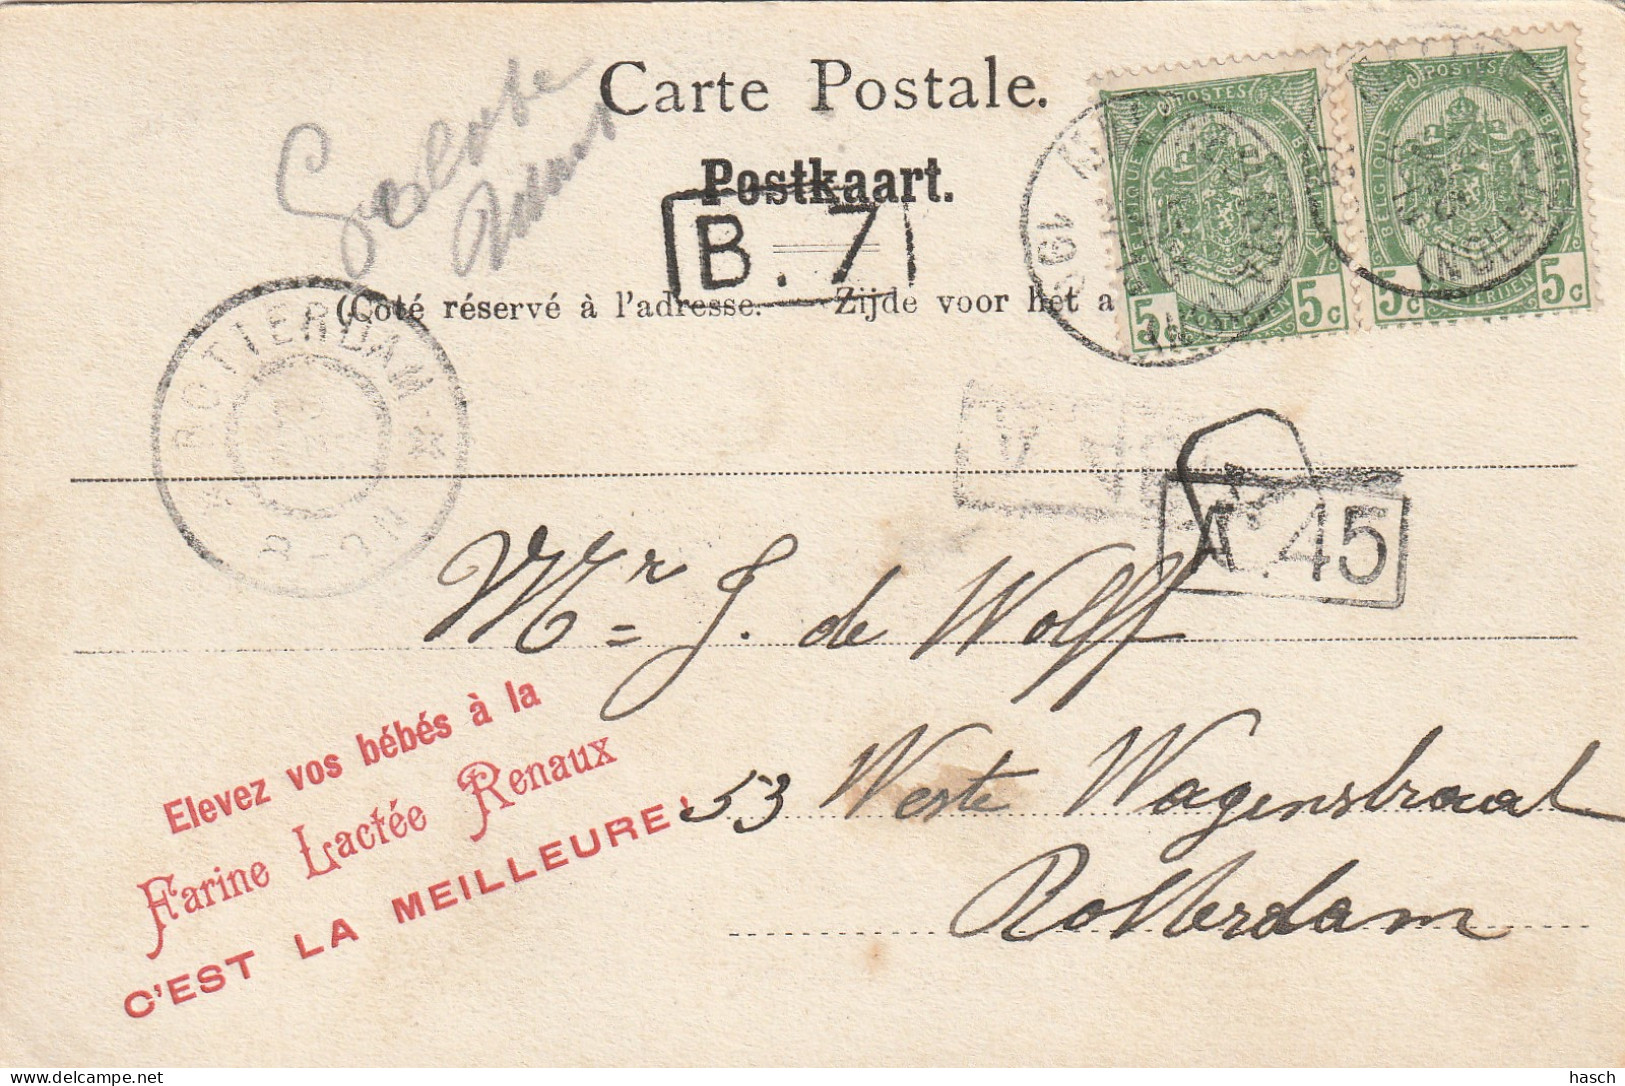 Carte Postale.
Postkaart.
B. 7
(Côté réservé à l'adresse. Zijde voor het a
POSTES
BELGIQUE BELGIË
5c 5c
POSTERIJEN
POSTES
BELGIQUE BELGIË
5c 5c
POSTERIJEN
ROTTERDAM
A. 45
Mr J. de Wolff
53 Weste Wagenstraat
Rotterdam
Elevez vos bébés à la
Farine Lactée Renaux
C'EST LA MEILLEURE!
hasch